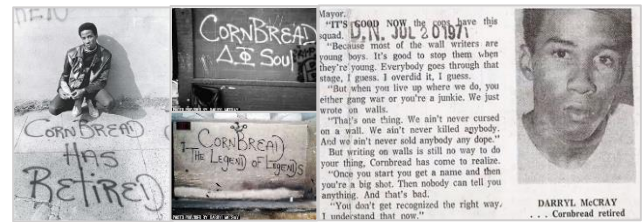 MEN
CORNBREAD
HAS
RETIRED
CORNBREAD
ΔΦ Soul
PHOTO PROVIDED BY DARRYL MCCRAY
CORNBREAD
THE LEGEND OF LEGENDS
PHOTO PROVIDED BY DARRYL MCCRAY
Mayor.
"IT'S GOOD NOW the cops have this
squad.
D.N. JUL 20 1971
"Because most of the wall writers are
young boys. It's good to stop them when
they're young. Everybody goes through that
stage, I guess. I overdid it, I guess.
"But when you live up where we do, you
either gang war or you're a junkie. We just
wrote on walls.
"That's one thing. We ain't never cursed
on a wall. We ain't never killed anybody.
And we ain't never sold anybody any dope."
But writing on walls is still no way to do
your thing, Cornbread has come to realize.
"Once you start you get a name and then
you're a big shot. Then nobody can tell you
anything. And that's bad.
"You don't get recognized the right way.
I understand that now."
DARRYL MCCRAY
. . . Cornbread retired